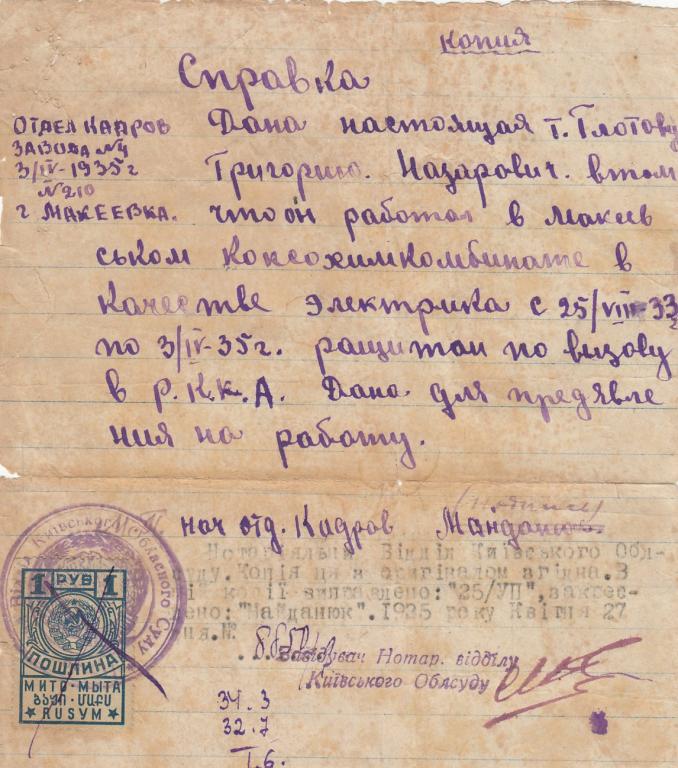 копия
Справка
ОТДЕЛ КАДРОВ
ЗАВОДА №4
3/IV-1935г
№210
г МАКЕЕВКА.
Дана настоящая т. Глотову
Григорию. Назарович. втом
что он работал в Макеев
ськом Коксохимкомбинате в
качестве электрика с 25/VIII-33
по 3/IV-35г. ращитан по визову
в Р.К.К.А. Дана для предявле
ния на работу.
(подпись)
нач отд. Кадров Майданюк
Нотаріяльний Відділ Київського Обл-
суду. Копія ця з оригіналом згідна. З
копії виправлено: "25/УП", закрес-
лено: "Майданюк". 1935 року Квітня 27
дня. №
Завідувач Нотар. відділу
Київського Облсуду
Київського Суду
1 РУБ 1
ПОШЛИНА
МИТО·МЫТА
ԲԱԺ·ՄԱՔՍ
RUSYM
34.3
32.7
1.6.